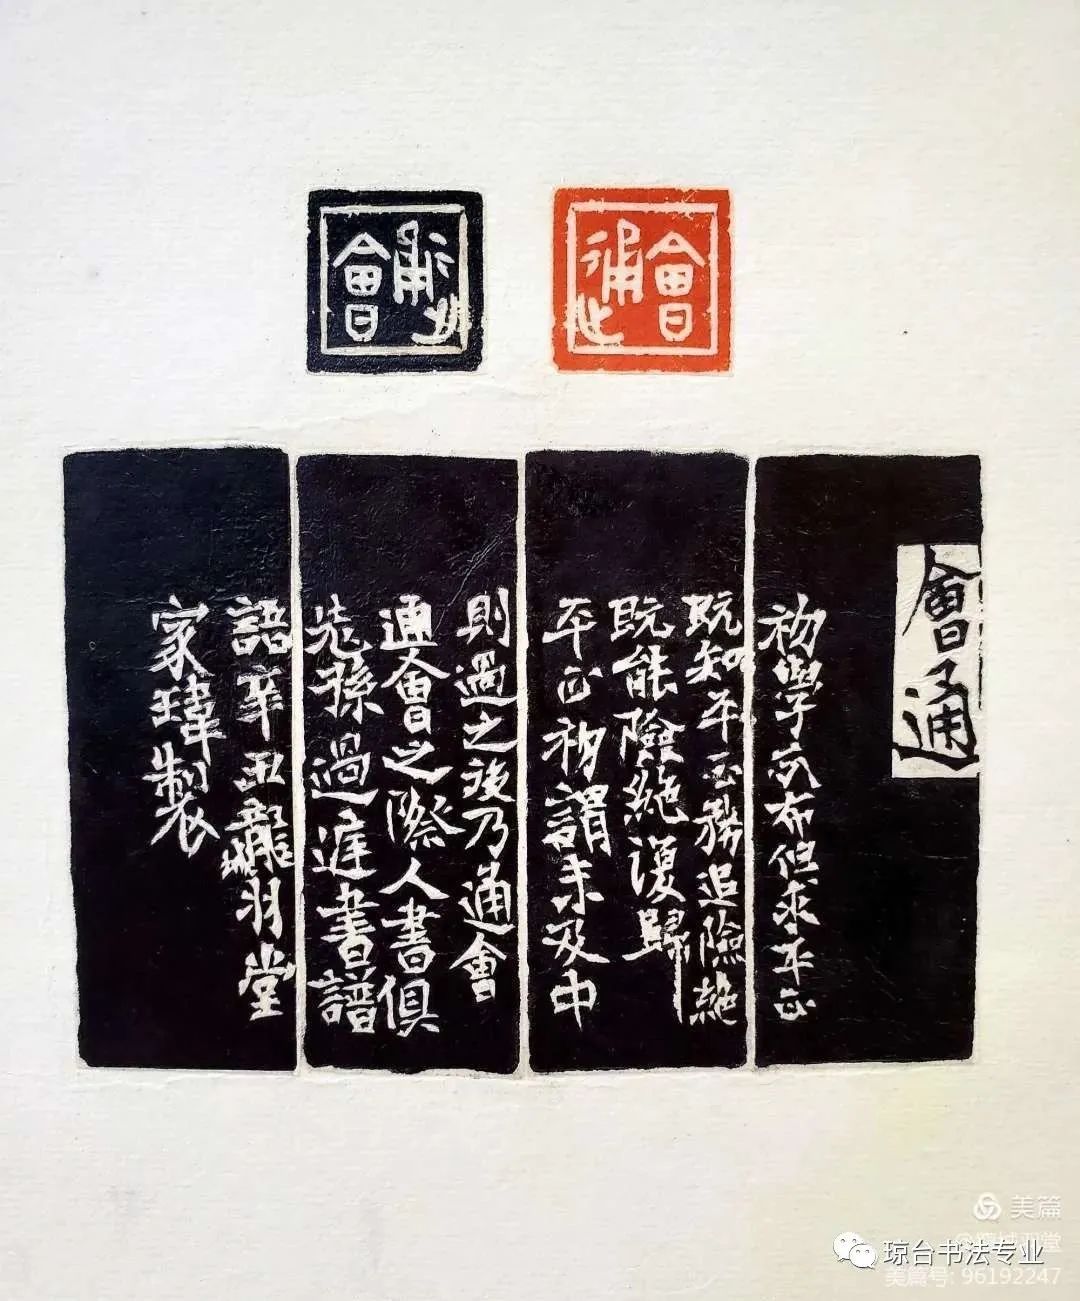 會通
會通
會通
初學分布但求平正
既知平正務追險絕
既能險絕復歸
平正初謂未及中
則過之後乃通會
通會之際人書俱
老孫過庭書譜
語辛丑龍城羽堂
家瑋製
美篇
琼台书法专业
美篇号: 96192247